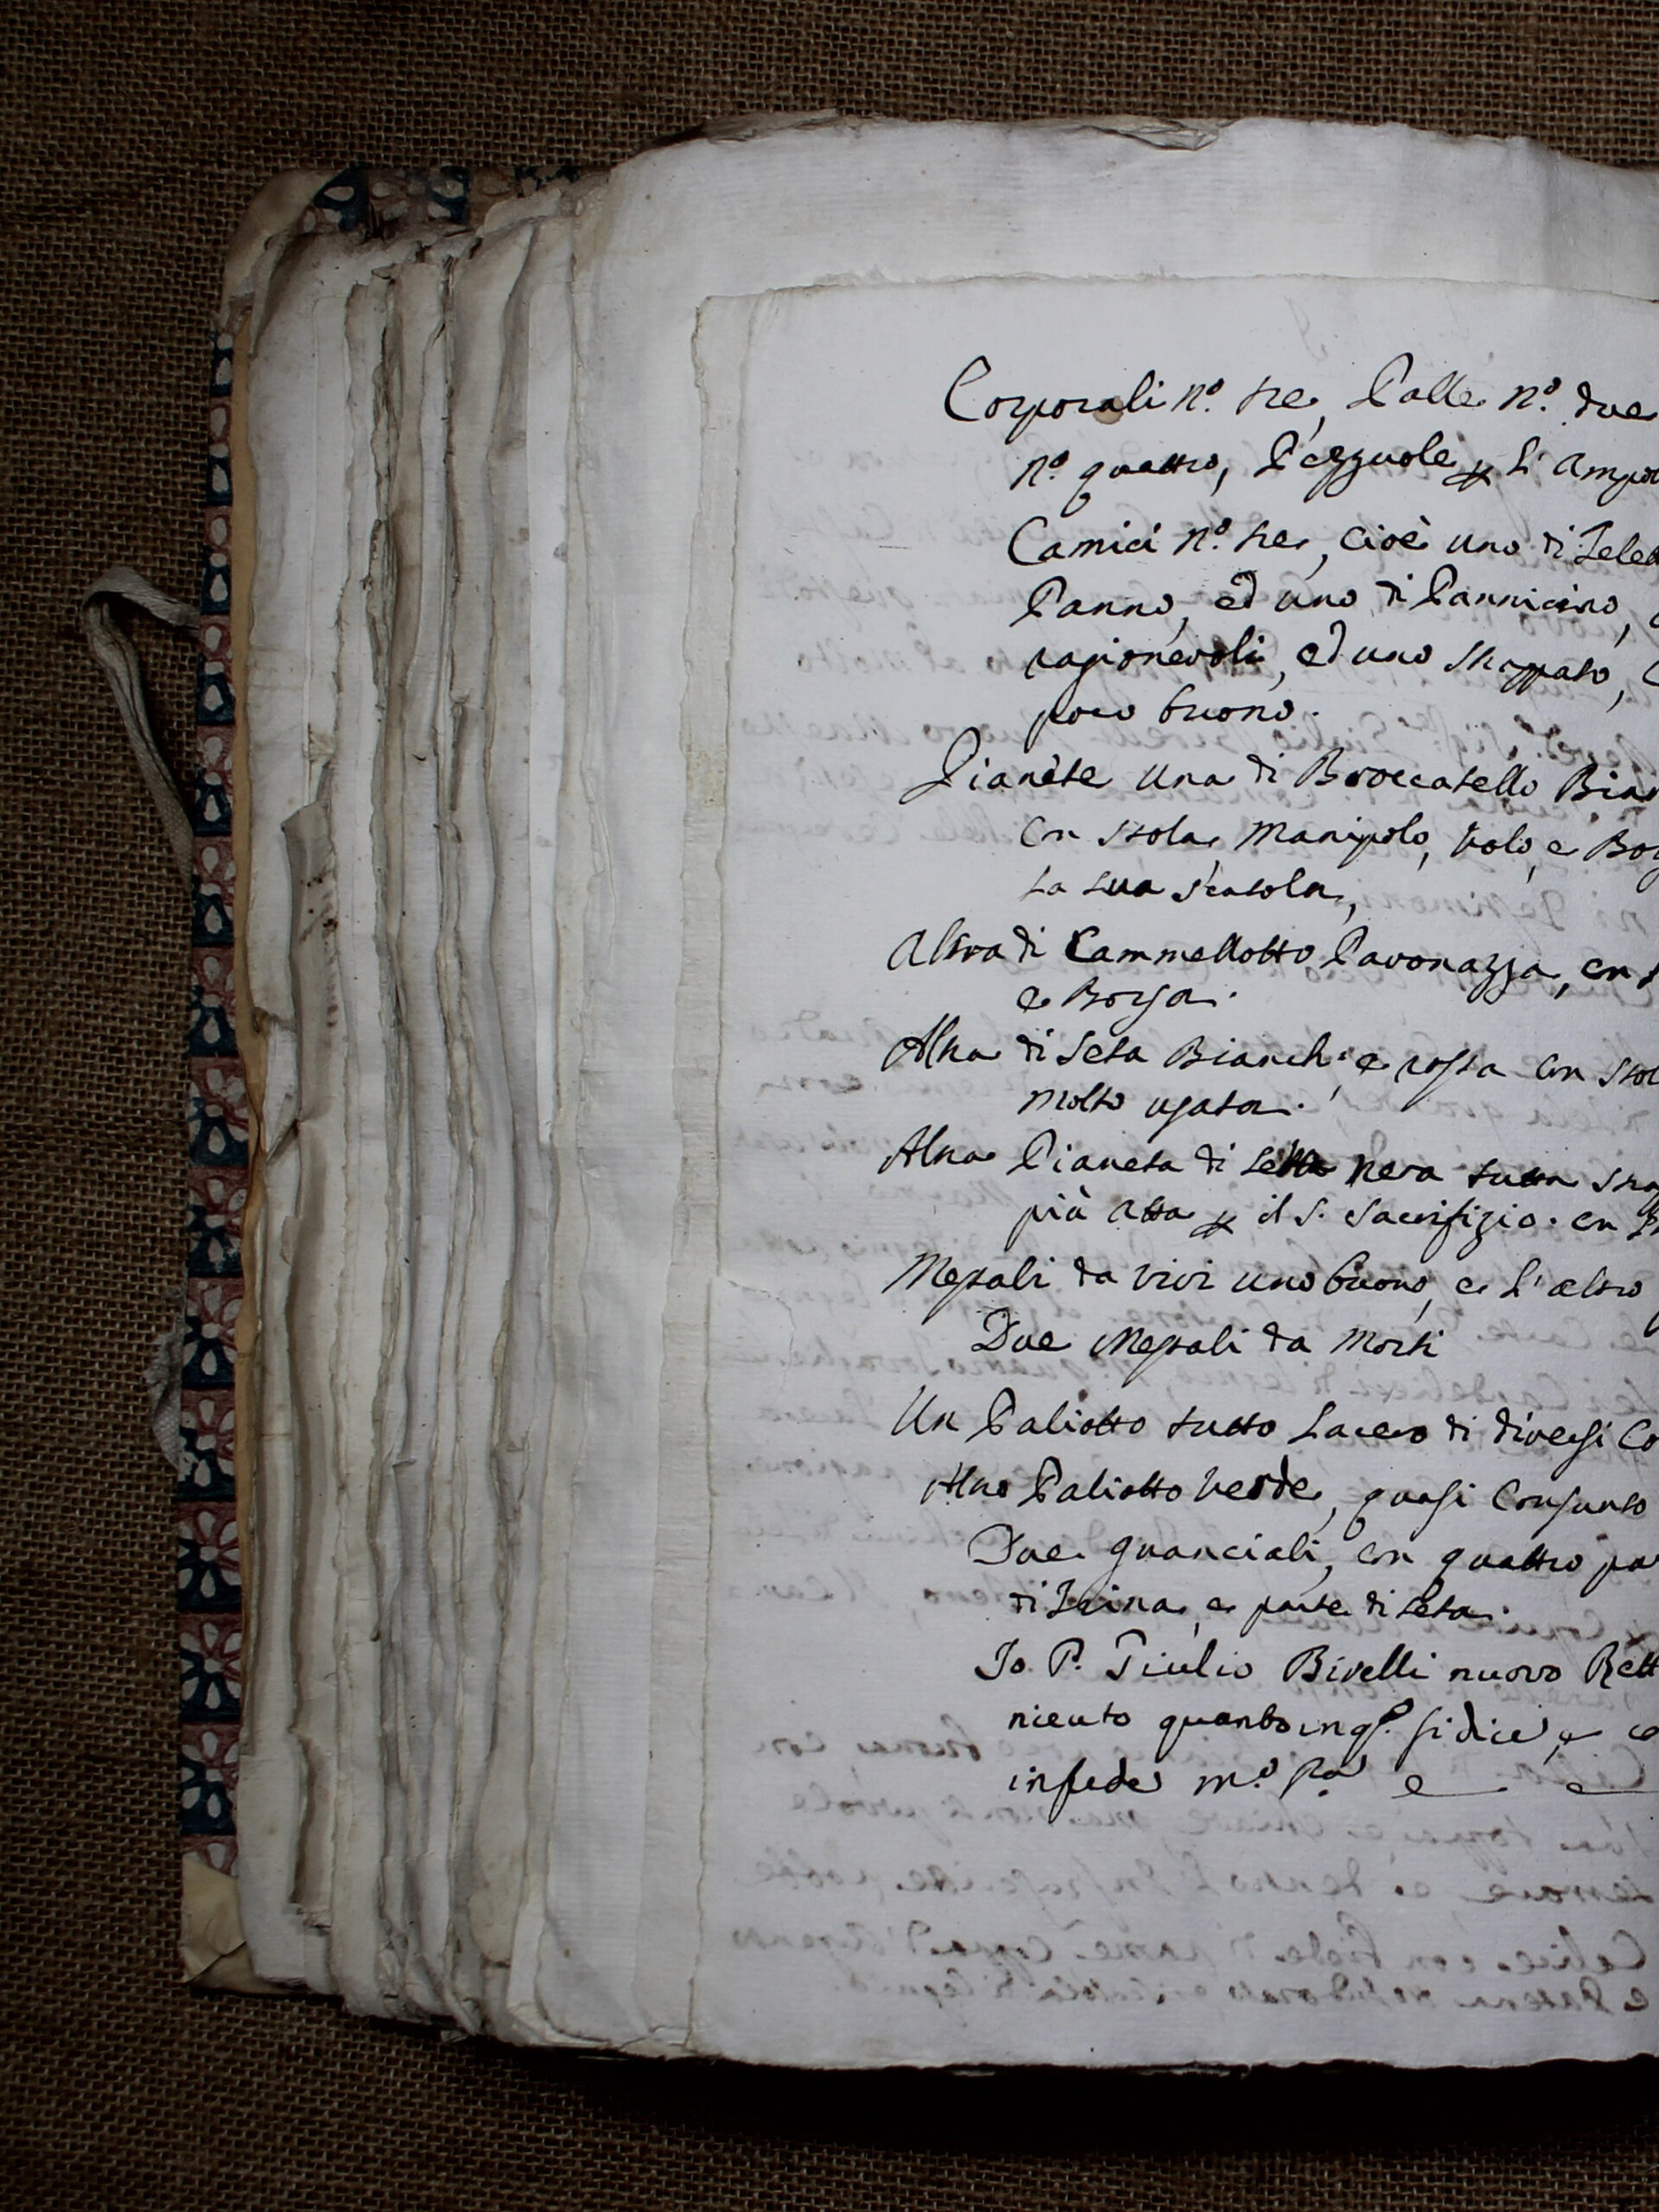 Corporali n.º tre, Palle n.º due
n.º quattro, Pezzuole p L'Ampol
Camici n.º tre, cioè uno di Telet
Panno, ed uno di Pannicino,
ragionevoli, ed uno strappato,
poco buono.
Pianete una di Broccatello Bian
con stola, Manipolo, Velo, e Bor
ta sua scatola,
Altra di Cammellotto Pavonazza, con
e Borsa.
Altra di Seta Bianch: e rossa con stol
molto usata.
Altra Pianeta di Seta nera tutta stra
più atta p il S. Sacrifizio. con
Messali da vivi uno buono, e L'altro
Due Messali da Morti
Un Paliotto tutto Lacero di diversi Co
Altro Paliotto verde, quasi Consunto
Due guanciali, con quattro
di Trina, e parte di Seta.
Io P. Giulio Birelli nuovo Rett
niento quanto in si dice, e
in fede m.º